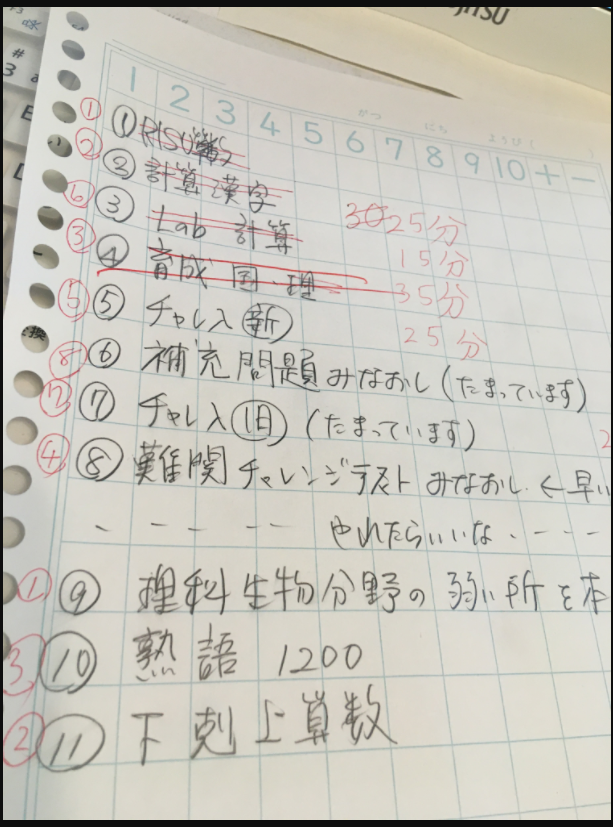 1 2 3 4 5 6 7 8 9 10 + −
がつ にち ようび(
① ① RISU算数
② ② 計算 漢字
⑥ ③ Lab 計算 3025分
③ ④ 育成 国・理 15分
⑤ ⑤ チャレ入 新 35分
25分
⑧ ⑥ 補充問題みなおし(たまっています)
⑦ ⑦ チャレ入 旧 (たまっています)
④ ⑧ 難関チャレンジテスト みなおし ← 早い
やれたらいいな
① ⑨ 理科生物分野の弱い所を本
③ ⑩ 熟語 1200
② ⑪ 下剋上算数